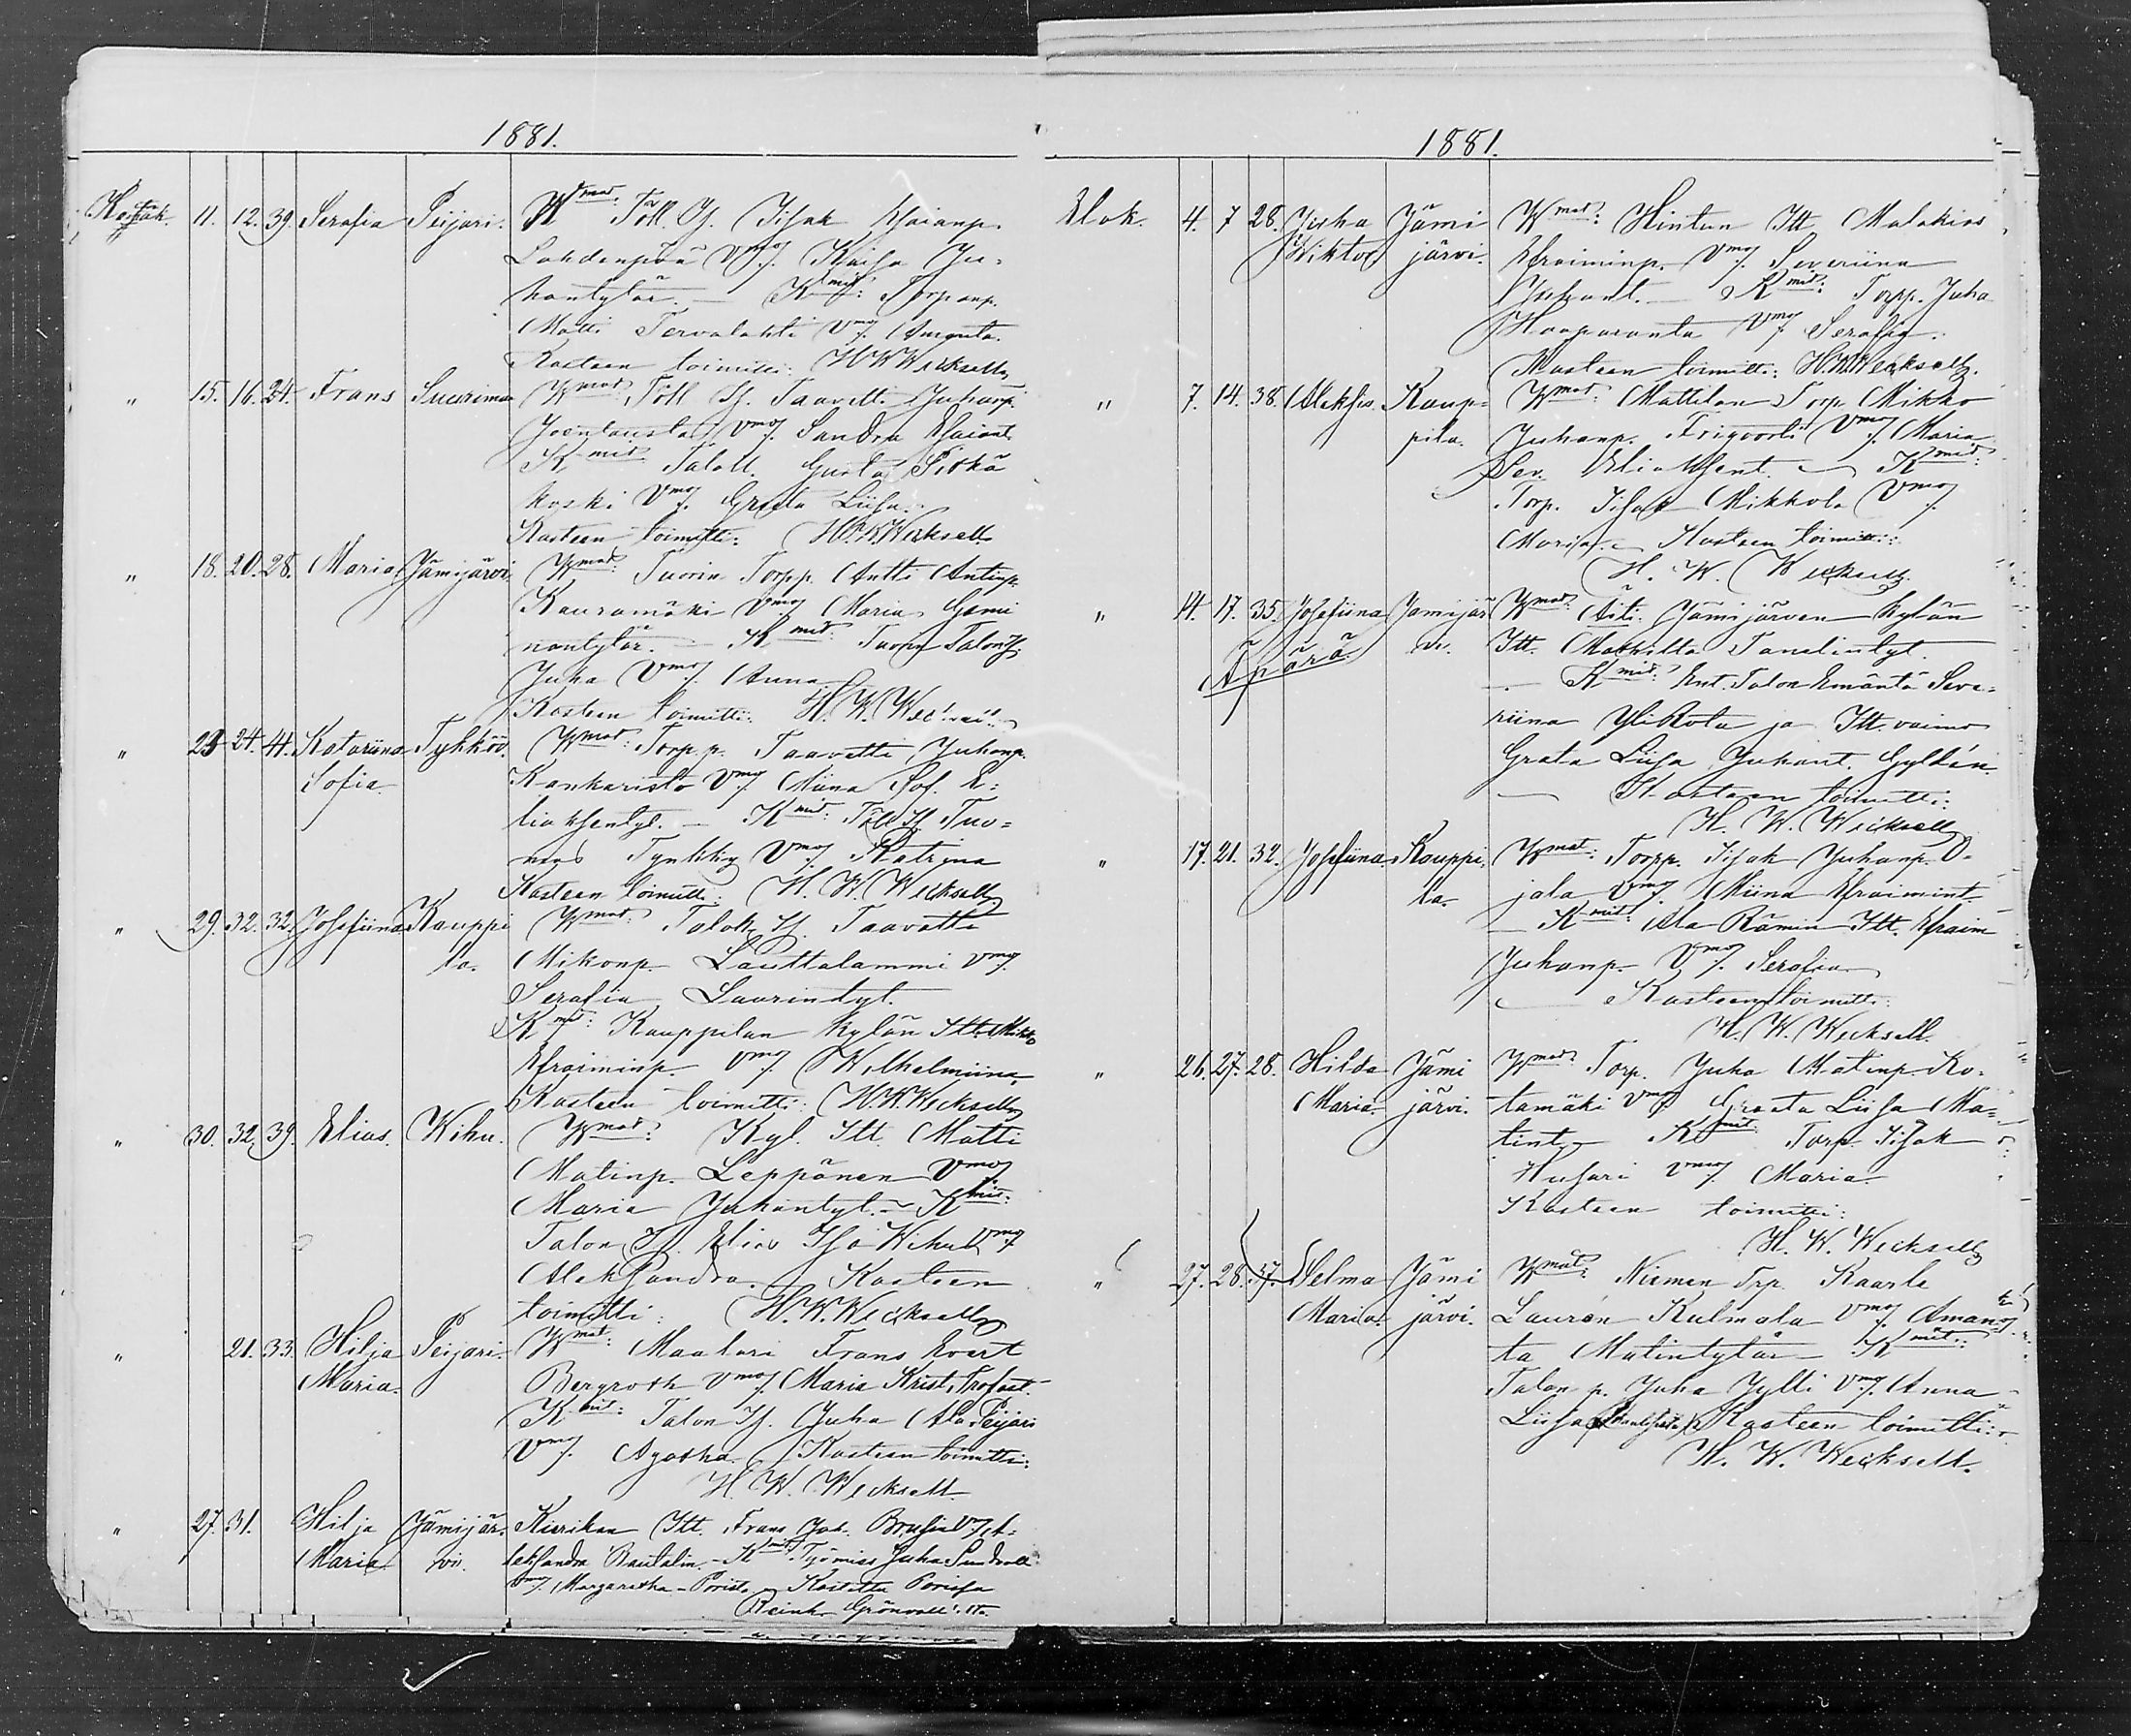 1881.
Heinäk. 11. 12. 39. Serafia Peijari. Wmat. Töll. Is. Isak Esaianp.
Lahdenperä Vmo. Kaisa Ju-
hantytär. — Kmit: Torpanp.
Matti Tervalahti Vmo. Augusta.
Kasteen toimitti: H W Wecksell
" 15. 16. 24. Frans Suurimaa Wmat. Töll Is. Taavetti Juhanp.
Joentausta Vmo. Sandra Esaiant.
Kmit. Taloll. Gusta Pitkä
koski Vmo. Greta Liisa.
Kasteen toimitti: H. W. Wecksell
" 18. 20. 28. Maria Jämijärvi Wmat: Tuorin Torpp. Antti Antinp.
Kauramäki Vmo. Maria
nantytär. — Kmit: Tuorin Talon Is.
Juha Vmo. Anna
Kasteen toimitti: H. W. Wecksell
" 23. 24. 44. Katariina Tykköö. Wmat: Torp. p. Taavetti Juhanp.
Sofia. Kankaristo Vmo. Miina Sof. E-
liaksentyt. — Kmit: Töll Is. Tuo-
mas Tynkky Vmo. Katrina
Kasteen toimitti: H. W. Wecksell
" 29. 32. 32. Josefiina Kauppi Wmat: Talok. Is. Taavetti
la. Mikonp. Lauttalammi Vmo.
Serafia Laurintyt.
Kmit: Kauppilan kylän Itt. Mikko
Efraiminp. Vmo. Wilhelmiina,
Kasteen toimitti: H. W. Wecksell
" 30. 32. 39. Elias. Wihu. Wmat: Kyl. Itt. Matti
Matinp. Leppänen Vmo
Maria Juhantyt. — Kmit:
Talon Is. Elias Iso Wihu Vmo
Aleksandra. Kasteen
toimitti: H. W. Wecksell
" 21. 33. Hilja Peijari. Wmat: Maalari Frans Evert
Maria. Bergroth Vmo. Maria Krist. Trofast.
Kmit: Talon Is. Juha Ala Peijari
Vmo. Agatha. Kasteen toimitti:
H. W. Wecksell.
" 27. 31. Hilja Jämijär- Kierikan Itt. Frans Joh. Brusin V. A-
Maria vi. leksandra — Kmit. Työmies Juha Sundvall
Vmo. Margaretha — Porista. Kastettu Porissa
Reinh. Grönvall
1881.
Elok. 4. 7 28. Juha Jämi Wmat: Hintun Itt Malakias
Wiktor järvi. Efraiminp. Vmo. Severiina
— Kmit: Torpp. Juha
Haaparanta Vmo. Serafia.
Kasteen toimitti: H. W. Wecksell.
" 7. 14. 38. Aleksis. Kaup- Wmat: Mattilan Torp. Mikko
pila. Juhanp. Frigvorti Vmo. Maria
Sev. Eliaksent. — Kmit:
Torp. Isak Mikkola Vmo
Maria. Kasteen toimitti:
H. W. Wecksell.
" 14. 17. 35. Josefiina Jämijär Wmat: Äiti. Jämijärven kylän
Äpärä. vi. Itt. Matilta Tanelintyt.
— Kmit: Ent. Talon Emäntä Seve-
riina Ylikota ja Itt. vaimo
Greta Liisa Juhant. Gyldén.
— Kasteen toimitti:
H. W. Wecksell
" 17. 21. 32. Josefiina Kauppi- Wmat: Torpp. Isak Juhanp. O-
la. jala Vmo. Miina Efraimint.
— Kmit: Ala Rämin Itt. Efraim
Juhanp. Vmo. Serafia
— Kasteen toimitti:
H. W. Wecksell.
" 26. 27. 28. Hilda Jämi Wmat: Torp. Juha Matinp. Ko-
Maria järvi. tamäki Vmo. Greeta Liisa Ma-
tint. Kmit: Torp. Isak
Husari Vmo. Maria.
Kasteen toimitti:
H. W. Wecksell
" 27. 28. 37. Selma Jämi Wmat: Niemen Trp. Kaarle
Maria. järvi. Laurén Kulmala Vmo. Aman
ta Matintytär — Kmit:
Talon p. Juha Jylli Vmo. Anna
Liisa Kasteen toimitti:
H. W. Wecksell.